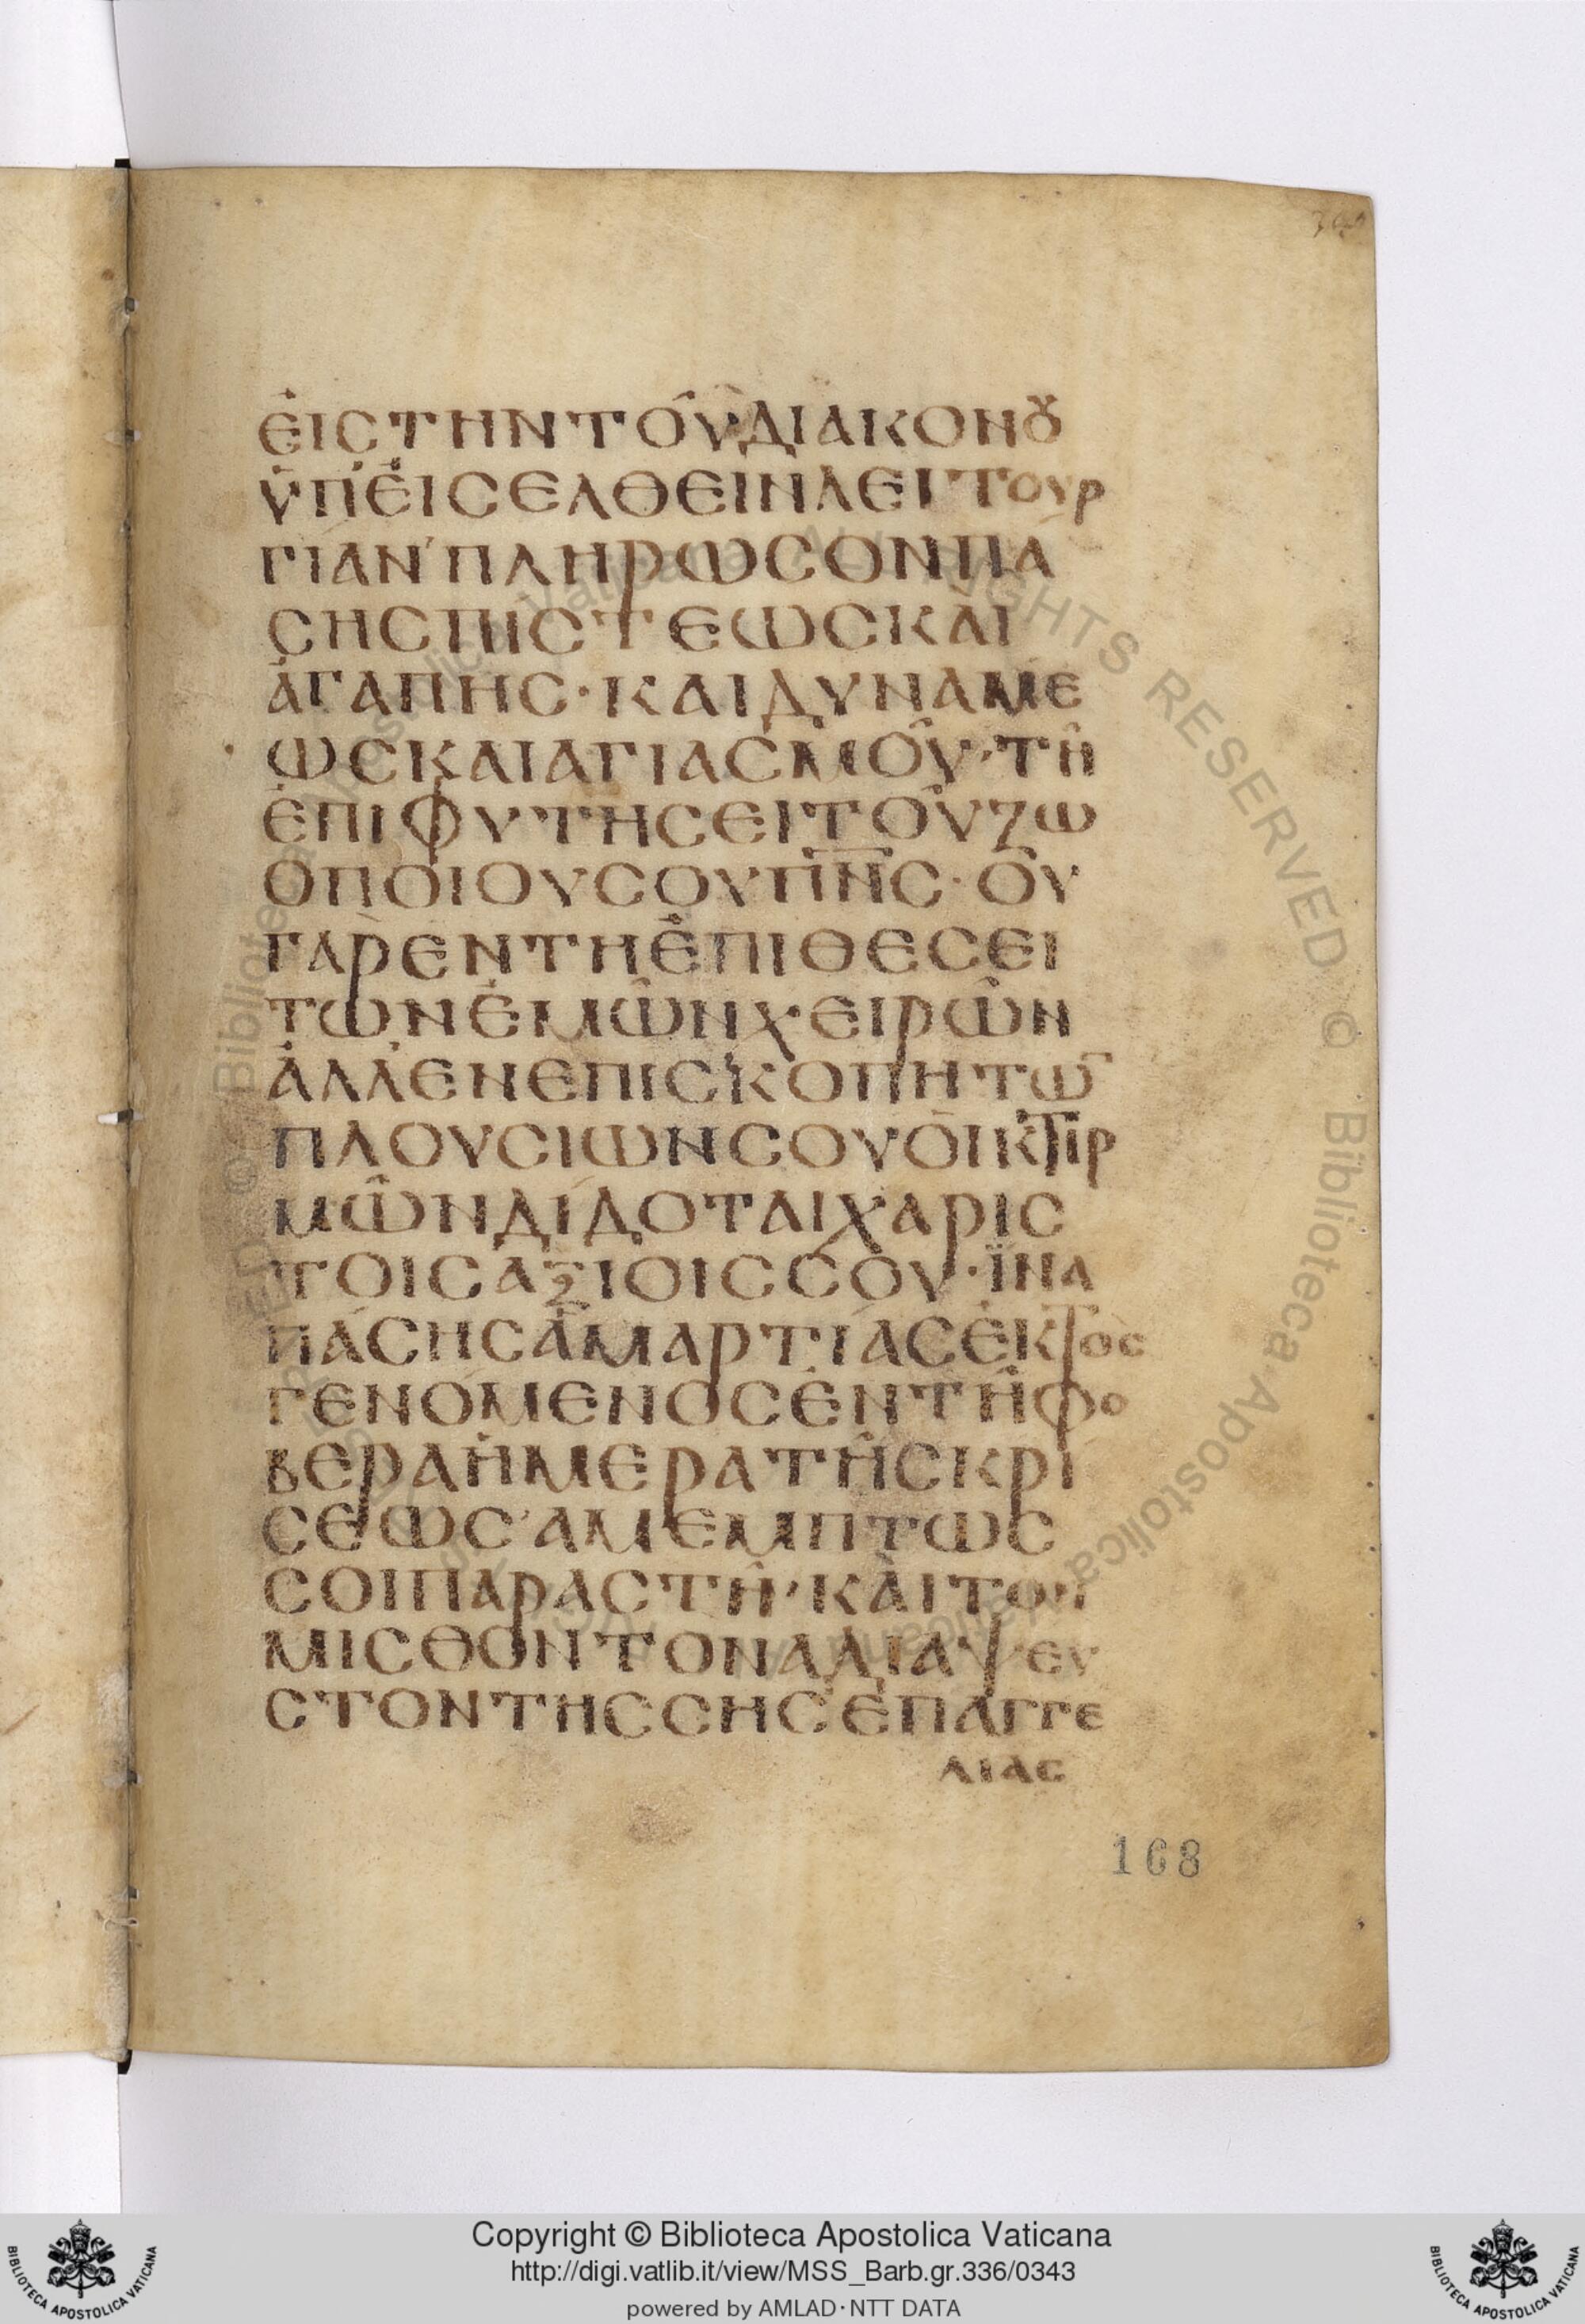 340
ἐις την τοῦ διακονȣ
ὑπεισελθειν λειτουρ
γίαν πληρωσον πά
σης πιστεως καὶ
ἀγαπης · και δυναμε
ως και αγιασμοῦ · τῆ
ἐπιφυτησει τοῦ ζω
οποιου σου π̅ν̅ς · οὐ
γὰρ εν τη ἐπιθεσει
των ἐμῶν χειρῶν
ἀλλ' εν επισκοπη τω̅
πλουσιων σου οἰκτιρ
μῶν δίδοται χαρις
τοις αξιοις σου · ἵνα
πάσης ἁμαρτίας ἐκτος
γενόμενος ἐν τῆ φο
βερα ἡμερα τῆς κρί
σεως' αμεμπτως
σοι παραστῆ, καὶ τον
μισθον τον αδιαψευ
στον της σης ἐπαγγε
λιας
168
© Biblioteca Apostolica Vaticana ALL RIGHTS RESERVED © Biblioteca Apostolica Vaticana
Copyright © Biblioteca Apostolica Vaticana
http://digi.vatlib.it/view/MSS_Barb.gr.336/0343
powered by AMLAD·NTT DATA
BIBLIOTECA APOSTOLICA VATICANA
BIBLIOTECA APOSTOLICA VATICANA